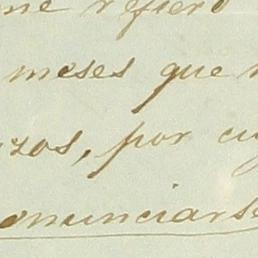 me refiero
meses que
zos, por cu
onunciarse